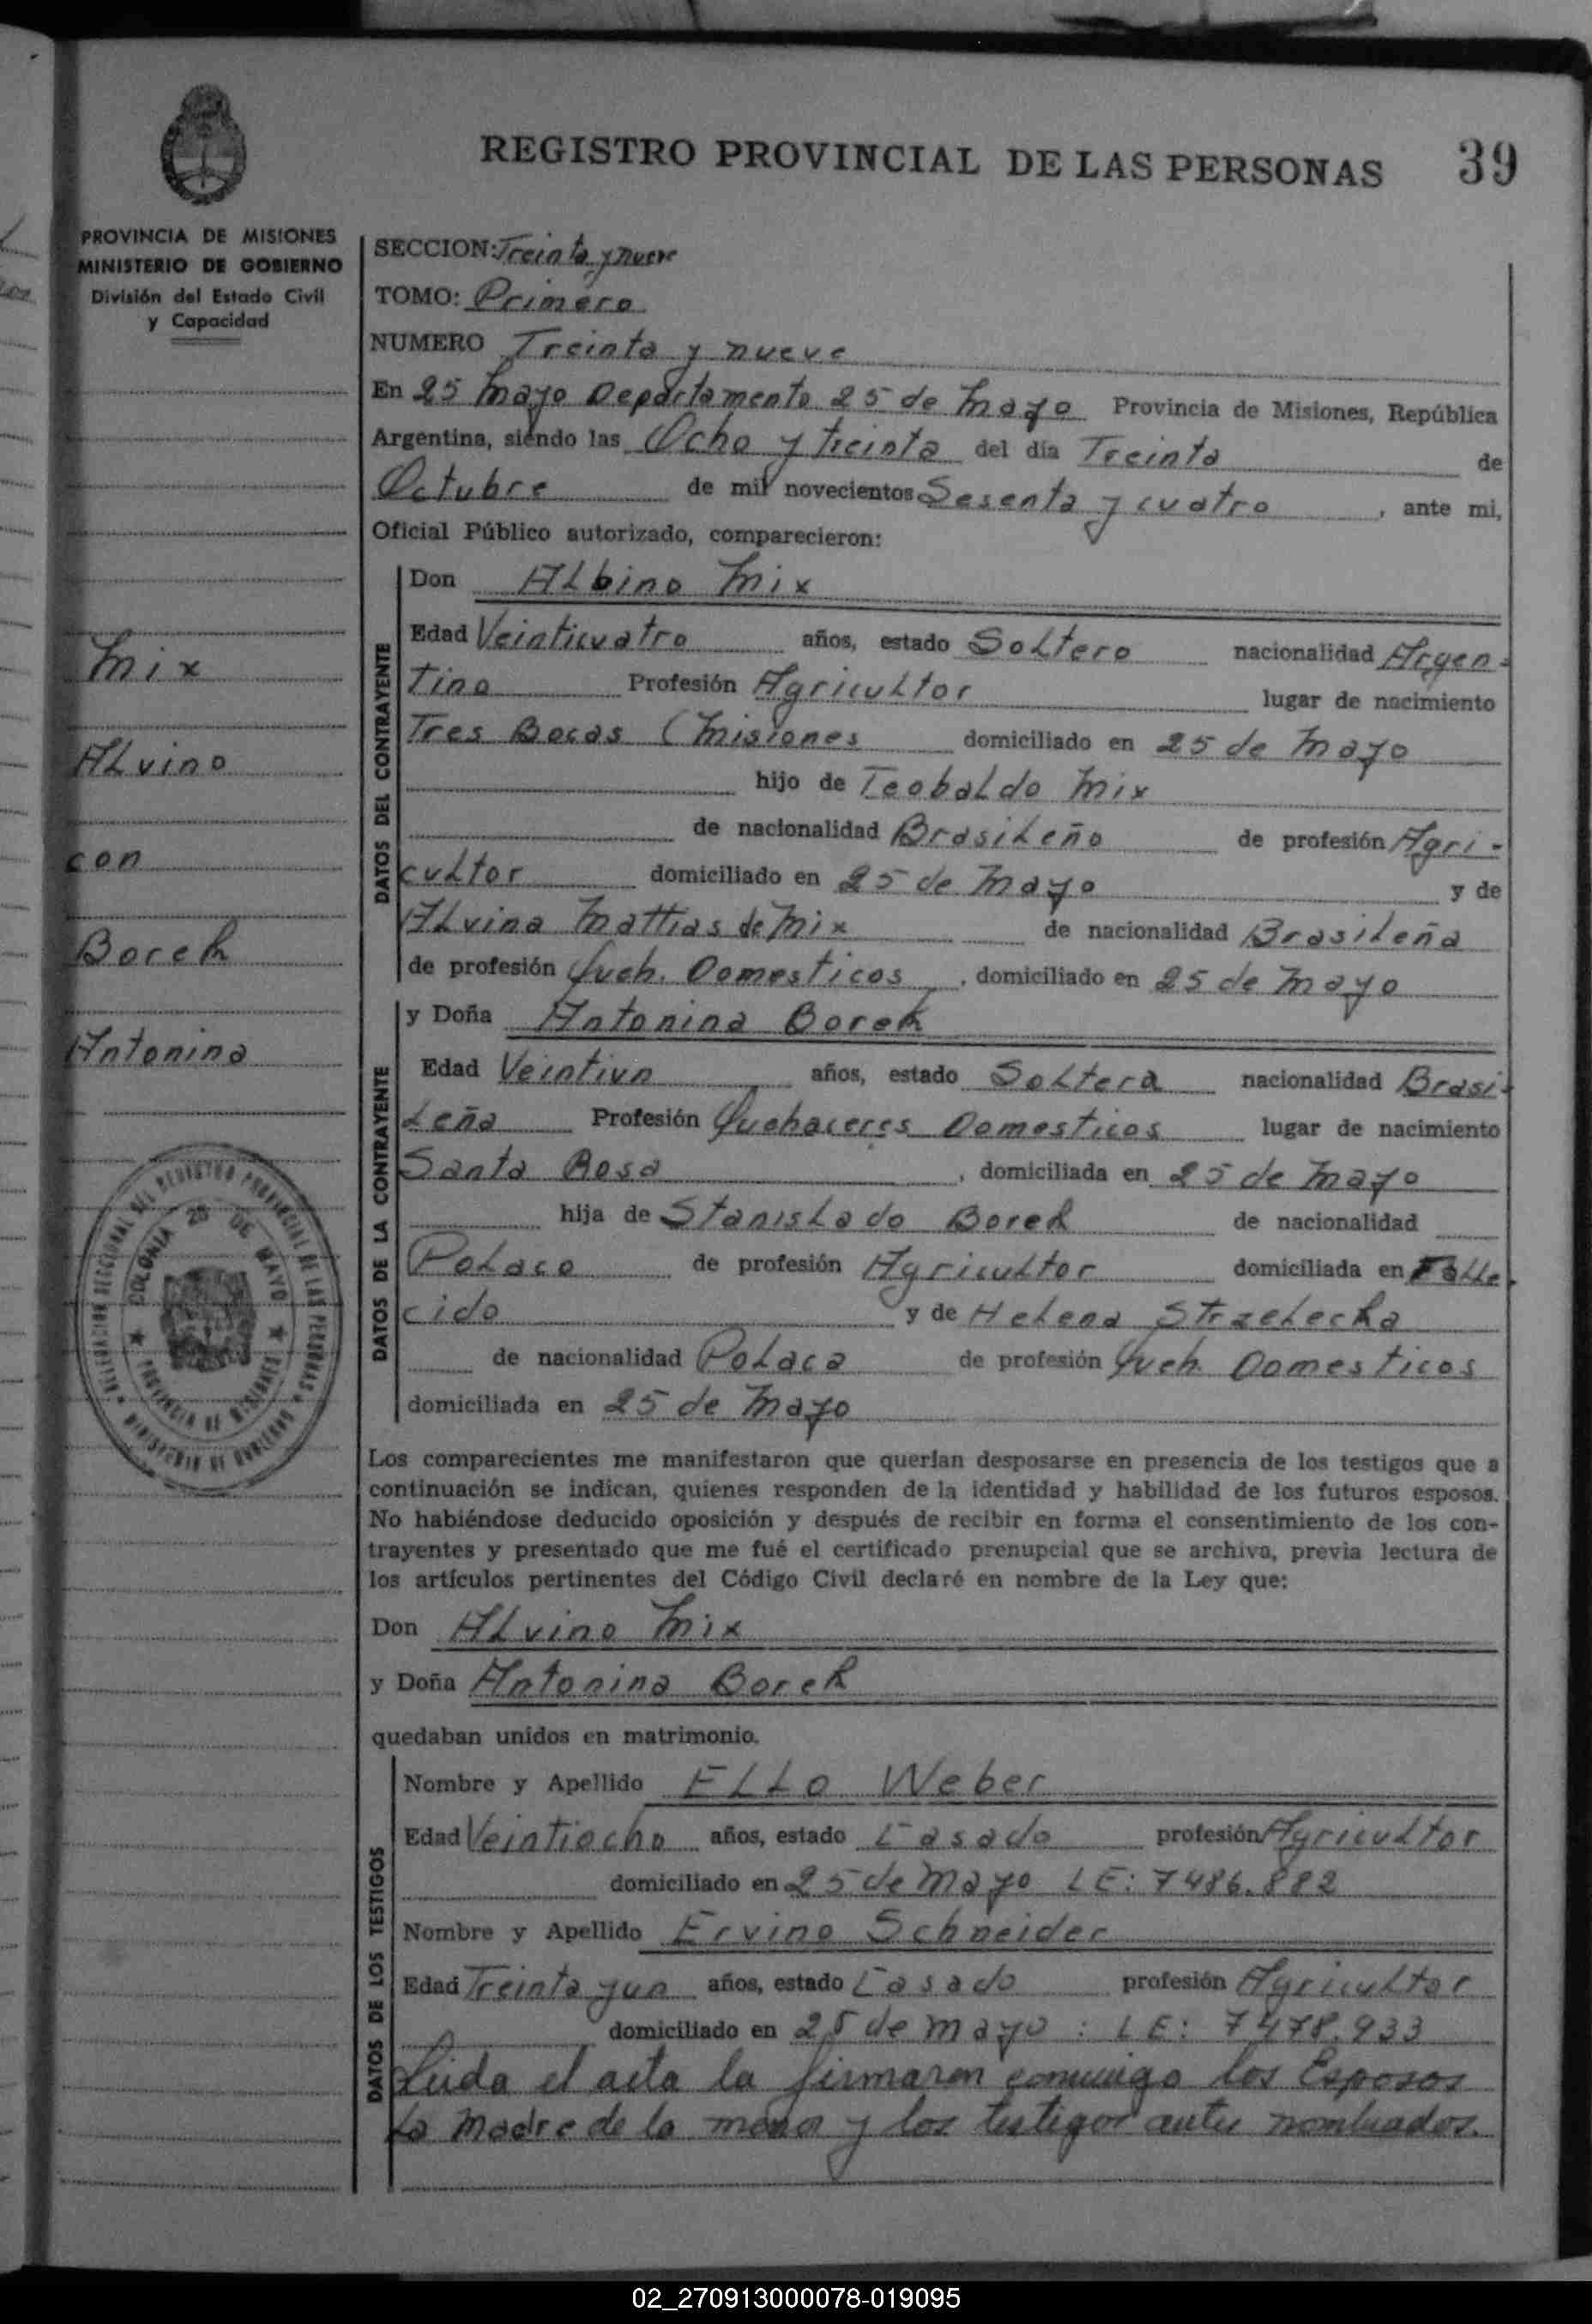 REGISTRO PROVINCIAL DE LAS PERSONAS 39
PROVINCIA DE MISIONES
MINISTERIO DE GOBIERNO
División del Estado Civil
y Capacidad
Mix
Alvino
con
Borek
Antonina
DELEGACION SECCIONAL DEL REGISTRO PROVINCIAL DE LAS PERSONAS
COLONIA 25 DE MAYO
PROVINCIA DE MISIONES
MINISTERIO DE GOBIERNO
SECCION: Treinta y nueve
TOMO: Primero
NUMERO Treinta y nueve
En 25 Mayo Departamento 25 de Mayo Provincia de Misiones, República
Argentina, siendo las Ocho y treinta del día Treinta de
Octubre de mil novecientos Sesenta y cuatro, ante mi,
Oficial Público autorizado, comparecieron:
DATOS DEL CONTRAYENTE
Don Albino Mix
Edad Veinticuatro años, estado Soltero nacionalidad Argen-
tino Profesión Agricultor lugar de nacimiento
Tres Bocas (Misiones domiciliado en 25 de Mayo
hijo de Teobaldo Mix
de nacionalidad Brasileño de profesión Agri-
cultor domiciliado en 25 de Mayo y de
Alvina Mattias de Mix de nacionalidad Brasileña
de profesión Queh. Domesticos, domiciliado en 25 de Mayo
DATOS DE LA CONTRAYENTE
y Doña Antonina Borek
Edad Veintiun años, estado Soltera nacionalidad Brasi-
leña Profesión Quehaceres Domesticos lugar de nacimiento
Santa Rosa, domiciliada en 25 de Mayo
hija de Stanislado Borek de nacionalidad
Polaco de profesión Agricultor domiciliada en Falle-
cido y de Helena Strzelecka
de nacionalidad Polaca de profesión Queh. Domesticos
domiciliada en 25 de Mayo
Los comparecientes me manifestaron que querían desposarse en presencia de los testigos que a
continuación se indican, quienes responden de la identidad y habilidad de los futuros esposos.
No habiéndose deducido oposición y después de recibir en forma el consentimiento de los con-
trayentes y presentado que me fué el certificado prenupcial que se archiva, previa lectura de
los artículos pertinentes del Código Civil declaré en nombre de la Ley que:
Don Alvino Mix
y Doña Antonina Borek
quedaban unidos en matrimonio.
DATOS DE LOS TESTIGOS
Nombre y Apellido Ello Weber
Edad Veintiocho años, estado Casado profesión Agricultor
domiciliado en 25 de Mayo LE: 7486.882
Nombre y Apellido Ervino Schneider
Edad Treinta y un años, estado Casado profesión Agricultor
domiciliado en 25 de Mayo : LE: 7478.933
Leida el acta la firmaron conmigo los Esposos
La Madre de la y los testigos antes nombrados.
02_270913000078-019095